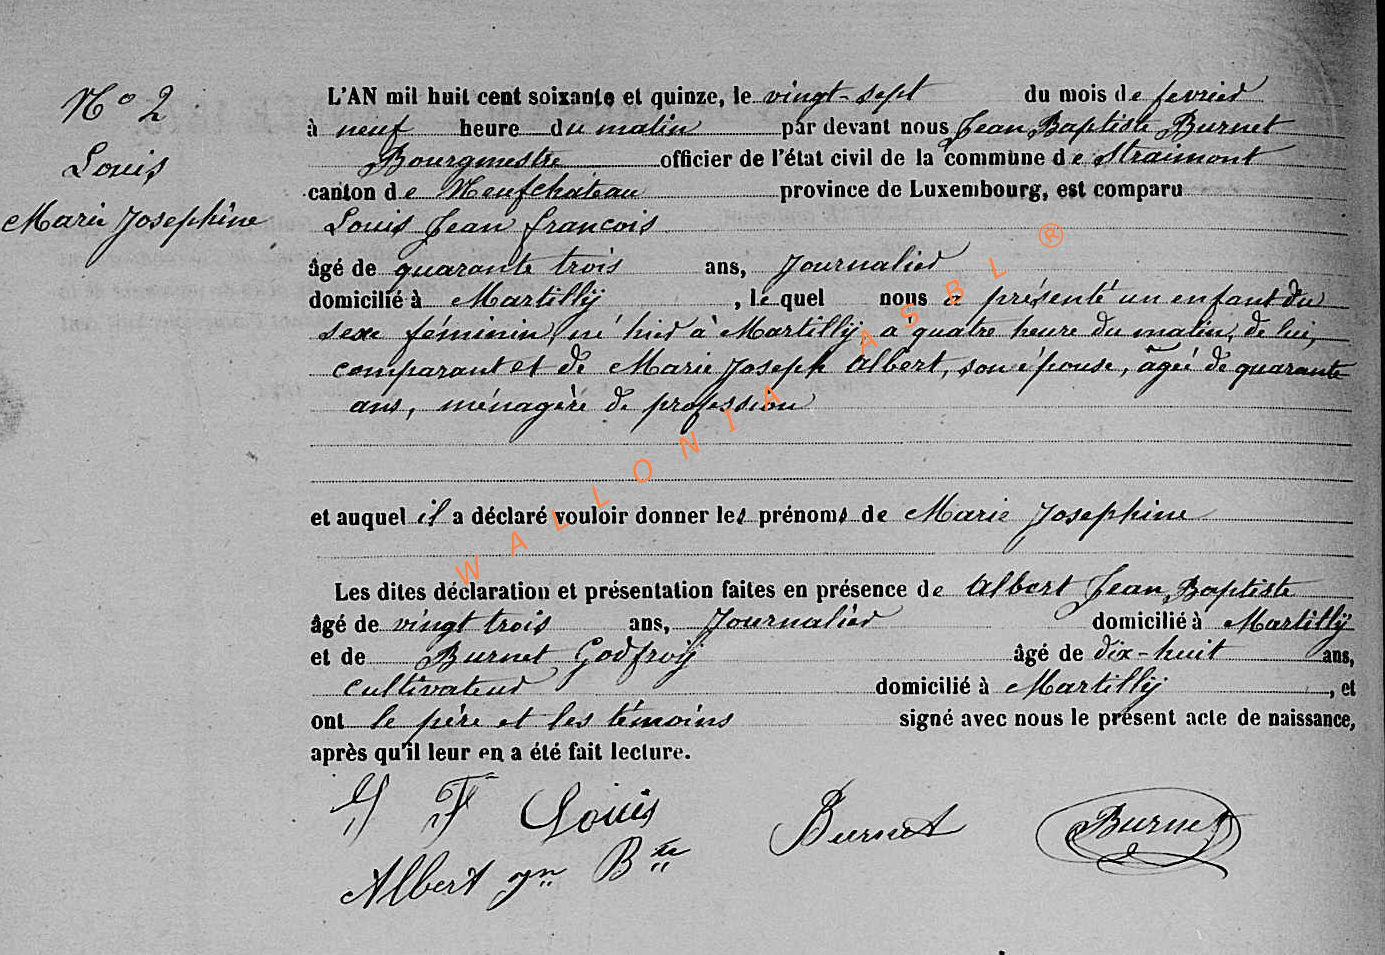 N° 2
Louis
Marie Josephine
L'AN mil huit cent soixante et quinze, le vingt-sept du mois de fevrier
à neuf heure du matin par devant nous Jean Baptiste Burnet
Bourgmestre officier de l'état civil de la commune de Straimont
canton de Neufchâteau province de Luxembourg, est comparu
Louis Jean françois
âgé de quarante trois ans, Journalier
domicilié à Martilly, lequel nous a présenté un enfant du
sexe féminin, né hier à Martilly à quatre heure du matin, de lui,
comparant et de Marie Joseph Albert, son épouse, âgée de quarante
ans, ménagère de profession
et auquel il a déclaré vouloir donner les prénoms de Marie Josephine
Les dites déclaration et présentation faites en présence de Albert Jean Baptiste
âgé de vingt trois ans, Journalier domicilié à Martilly
et de Burnet Godfroy âgé de dix-huit ans,
cultivateur domicilié à Martilly, et
ont le père et les témoins signé avec nous le présent acte de naissance,
après qu'il leur en a été fait lecture.
J F Louis Burnet Burnet
Albert Jn Bte
WALLONIA ASBL ®